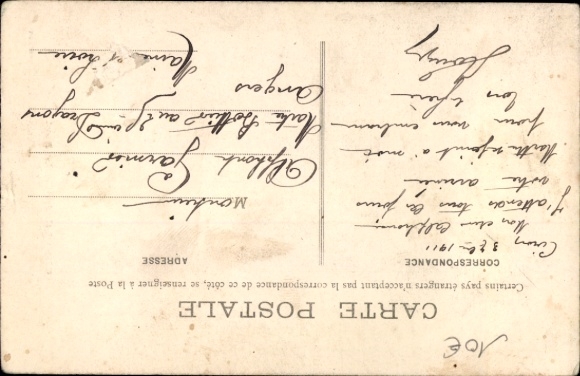 CARTE POSTALE
Certains pays étrangers n'acceptant pas la correspondance de ce côté, se renseigner à la Poste
CORRESPONDANCE
1911
Mon cher Alphonse
J'attends tous les jours
votre arrivée
Marthe se joint à moi
pour vous embrasser
Ton frère
ADRESSE
Monsieur
Alphonse Garnier
Maître Bottier au Dragons
Angers
Maine et Loire
10€